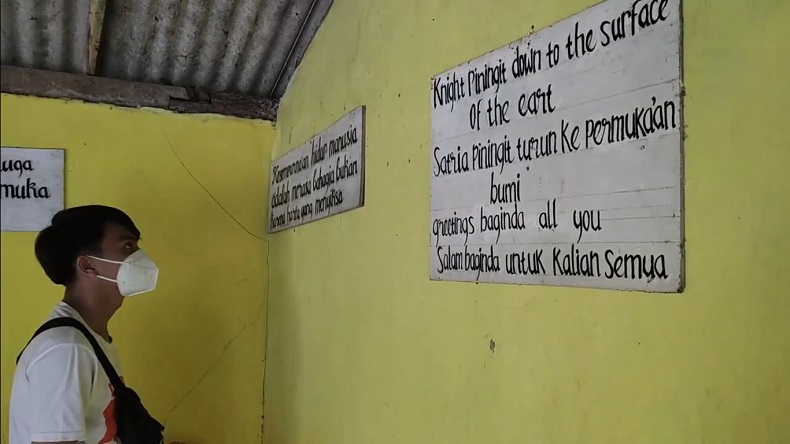 uga
muka
Kesempurnaan hidup manusia
adalah merasa bahagia bukan
karena harta yang menyiksa
Knight Piningit down to the surface
of the eart
Satria Piningit turun ke permuka'an
bumi
greetings baginda all you
Salam baginda untuk kalian semua